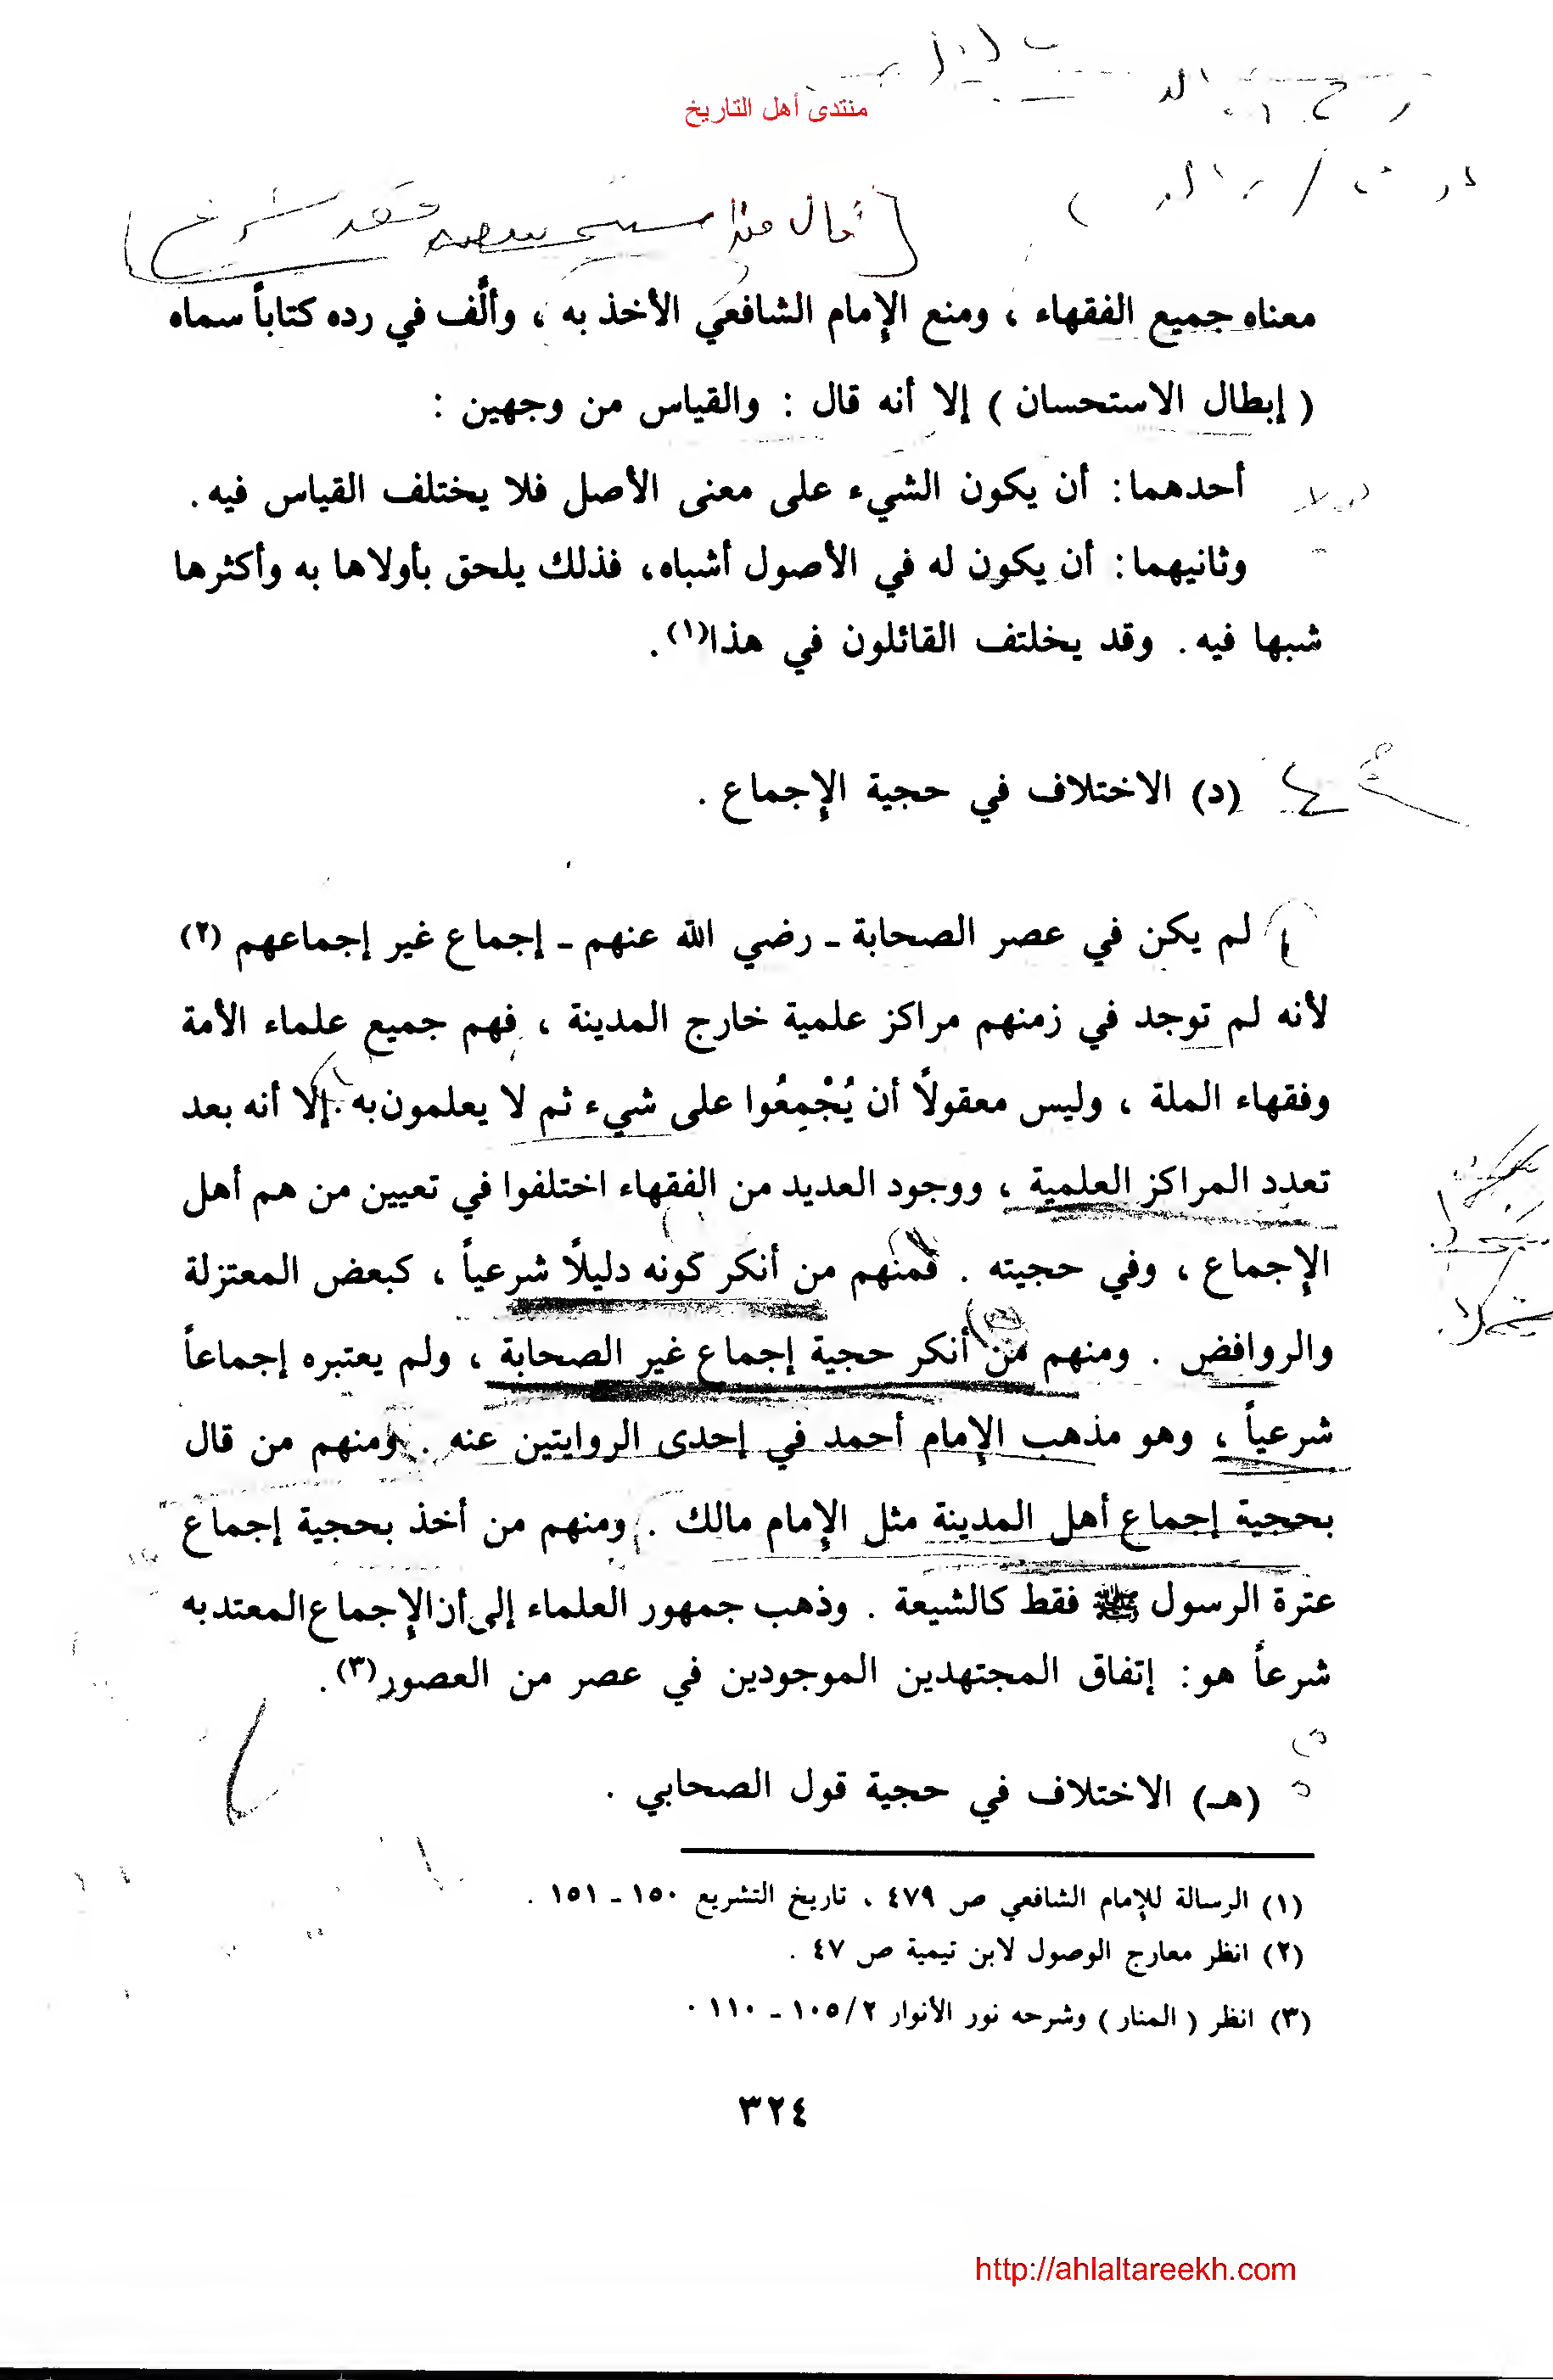 منتدى أهل التاريخ
معناه جميع الفقهاء ، ومنع الإمام الشافعي الأخذ به ، وألَّف في رده كتاباً سماه
( إبطال الاستحسان ) إلا أنه قال : والقياس من وجهين :
أحدهما : أن يكون الشيء على معنى الأصل فلا يختلف القياس فيه .
وثانيهما : أن يكون له في الأصول أشباه ، فذلك يلحق بأولاها به وأكثرها
شبها فيه . وقد يخلتف القائلون في هذا(١) .
(د) الاختلاف في حجية الإجماع .
لم يكن في عصر الصحابة - رضي الله عنهم - إجماع غير إجماعهم (٢)
لأنه لم توجد في زمنهم مراكز علمية خارج المدينة ، فهم جميع علماء الأمة
وفقهاء الملة ، وليس معقولاً أن يُجْمِعُوا على شيء ثم لا يعلمون به . إلا أنه بعد
تعدد المراكز العلمية ، ووجود العديد من الفقهاء اختلفوا في تعيين من هم أهل
الإجماع ، وفي حجيته . فمنهم من أنكر كونه دليلاً شرعياً ، كبعض المعتزلة
والروافض . ومنهم من أنكر حجية إجماع غير الصحابة ، ولم يعتبره إجماعاً
شرعياً ، وهو مذهب الإمام أحمد في إحدى الروايتين عنه . ومنهم من قال
بحجية إجماع أهل المدينة مثل الإمام مالك . ومنهم من أخذ بحجية إجماع
عترة الرسول ﷺ فقط كالشيعة . وذهب جمهور العلماء إلى أن الإجماع المعتد به
شرعاً هو : إتفاق المجتهدين الموجودين في عصر من العصور(٣) .
(هـ) الاختلاف في حجية قول الصحابي .
(١) الرسالة للإمام الشافعي ص ٤٧٩ ، تاريخ التشريع ١٥٠ - ١٥١ .
(٢) انظر معارج الوصول لابن تيمية ص ٤٧ .
(٣) انظر ( المنار ) وشرحه نور الأنوار ١٠٥/٢ - ١١٠ .
٣٢٤
http://ahlaltareekh.com